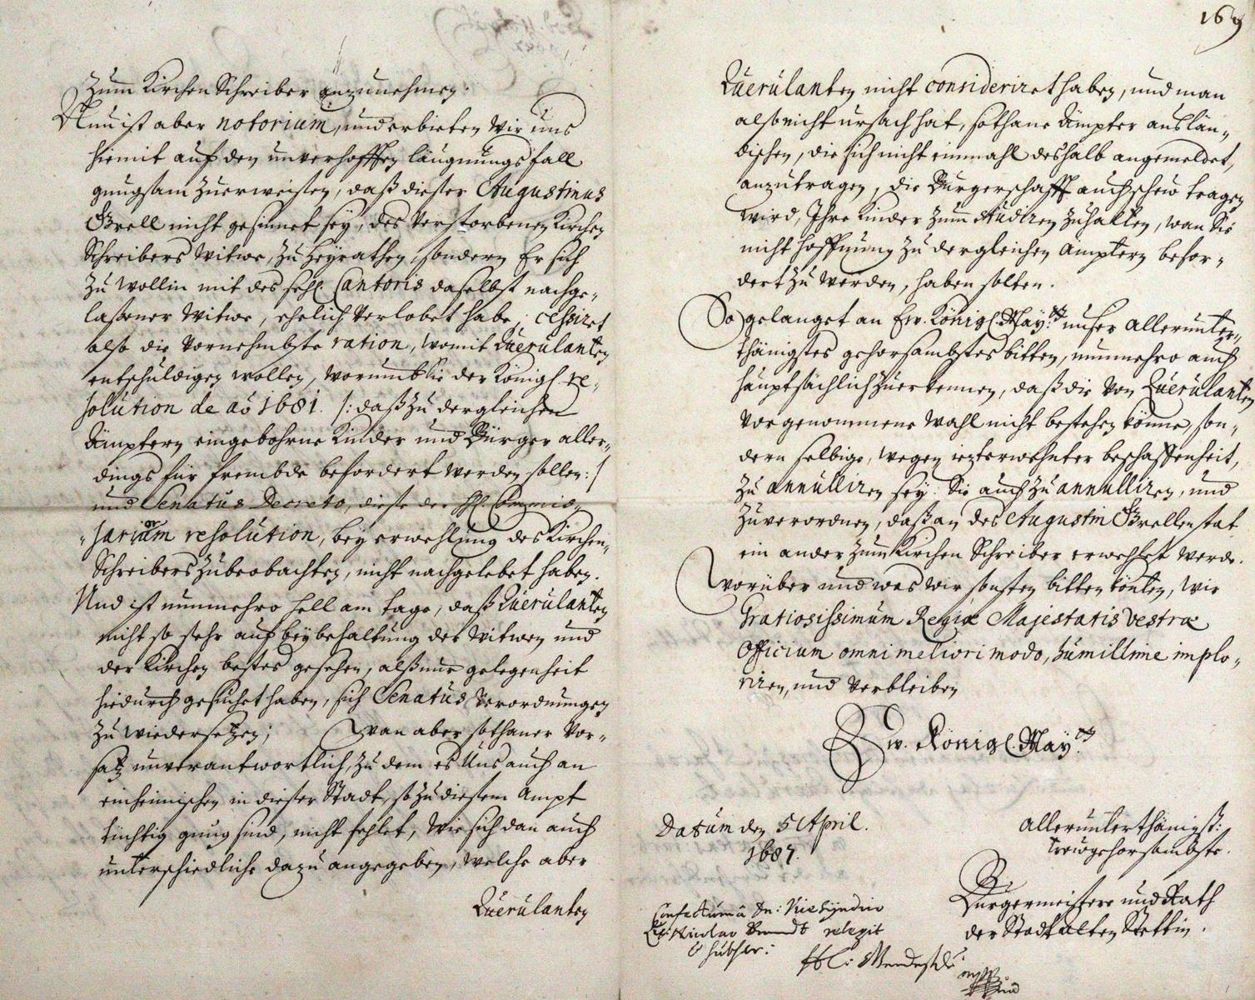 zum Kirchen Schreiber anzunehmen.
Nun ist aber notorium, und erbieten wir uns
hiemit auf den unverhofften läugnungs fall
gnugsam zuerweisen, daß dieser Augustinus
Grell nicht gesinnet sey, des verstorbenen Kirchen
Schreibers Witwe, zu heyrathen, sondern Er sich
zu Wollin mit des sehl. Cantoris daselbst nachge-
laßener Witwe, ehelich verlobet habe, cessiret
also die vornehmbste ration, womit Querulanten
entschuldigen wollen, warumb Sie der Königl. re-
solution de ao 1681. /: daß zu dergleichen
Ämptern eingebohrne Kinder und Bürger aller-
dings für frembde befordert werden sollen :/
und Senatus Decreto, diese der H. Commis-
sarien resolution, bey erwehlung des Kirchen-
Schreibers zubeobachten, nicht nachgelebet haben.
Und ist nunmehro hell am tage, daß Querulanten
nicht so sehr auf beybehaltung der Witwen und
der Kirchen bestes gesehen, alß nur gelegenheit
hiedurch gesuchet haben, sich Senatus Verordnungen
zu wiedersetzen; Wan aber sothaner vor-
satz unverantwortlich, zu dem es Uns auch an
einheimischen in dieser Stadt, so zu diesem Ampt
tüchtig gnug sind, nicht fehlet, wie sich dan auch
unterschiedliche dazu angegeben, welche aber
Querulanten
169
Querulanten nicht consideriret haben, und man
also nicht ursach hat, sothane Ämpter auslän-
dischen, die sich nicht einmahl deshalb angemeldet,
anzutragen, die Bürgerschafft auch scheu tragen
wird, Ihre Kinder zum studiren zuhalten, wan Sie
nicht hoffnung zu dergleichen Ämptern befor-
dert zu werden, haben solten.
So gelanget an Ew. Königl. May.tt unser allerunter-
thänigstes gehorsambstes bitten, nunmehro auch
hauptsächlich zuerkennen, daß die von Querulanten
vorgenommene Wahl nicht bestehen könne, son-
dern selbige, wegen erwehnter beschaffenheit,
zu annulliren sey. Sie auch zu annulliren, und
zuverordnen, daß an des Augustin Grellen stat
ein ander zum Kirchen Schreiber erwehlet werde.
Worüber und was wir sonsten bitten könten, wir
Gratiosissimum Regiæ Majestatis Vestræ
Officium omni meliori modo, humillime implo-
riren, und verbleiben
Ew. Königl. May.tt
Datum den 5 April.
1687.
allerunterthänigst
treugehorsambste.
Bürgermeistere und Rath
der Stadt Alten Stettin.